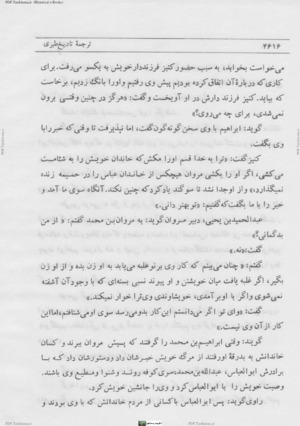 ۴۶۱۶ ترجمهٔ تاریخ طبری
می‌خواست بخوابد، به سبب حضور کنیز فرزنددار خویش به یکسو می‌رفت. برای
کاری که دربارهٔ آن اتفاق کرده بودیم پیش وی رفتیم و او را بانگ زدیم، برخاست
که بیاید. کنیز فرزند دارش در او آویخت و گفت: «هرگز در چنین وقتی برون
نمی‌شدی، برای چه می‌روی؟»
گوید: ابراهیم با وی سخن گونه‌گون گفت، اما نپذیرفت تا وقتی که خبر را با
وی بگفت.
کنیز گفت: «ترا به خدا قسم او را مکش که خاندان خویش را به شئامت
می‌کشی، اگر او را بکشی مروان هیچکس از خاندان عباس را در حمیمه زنده
نمی‌گذارد.» و از او جدا نشد تا سوگند یاد کرد که چنین نکند. آنگاه سوی ما آمد و
خبر را با ما بگفت که گفتیم: «تو بهتر دانی.»
عبدالحمید بن یحیی، دبیر مروان گوید: به مروان بن محمد گفتم: «از من
بدگمانی؟»
گفت: «نه.»
گفتم: «چنان می‌بینم که کار وی بر تو غلبه می‌یابد به او زن بده و از او زن
بگیر، اگر غلبه یافت میان خویشتن و او پیوند نسبی بسته‌ای که با وجود آن آشفته
نمی‌شوی و اگر با او برآمدی، خویشاوندی وی ترا خوار نمی‌کند.»
گفت: «وای تو! اگر می‌دانستم این کار بدو می‌رسد سوی او می‌شتافتم، اما این
کار از آن وی نیست.»
گویند: وقتی ابراهیم بن محمد را گرفتند که پیش مروان برند و کسان
خاندانش به بدرقهٔ او رفتند از مرگ خویش خبرشان داد و دستورشان داد که با
برادرش ابوالعباس، عبدالله بن محمد، سوی کوفه روند و شنوا و مطیع وی باشند.
وصیت خویش را با ابوالعباس کرد و وی را جانشین خویش کرد.
راوی گوید: پس ابوالعباس با کسانی از مردم خاندانش که با وی بردند و